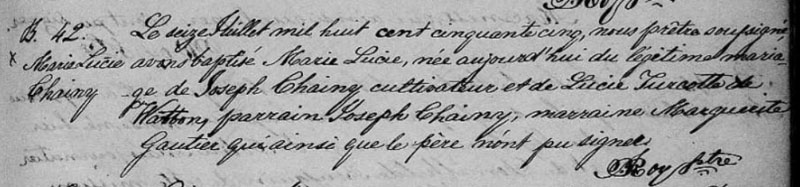 B. 42. Le seize Juillet mil huit cent cinquante cinq, nous prêtre soussigné
x Marie Lucie avons baptisé Marie Lucie, née aujourd'hui du légitime maria-
Chainy ge de Joseph Chainy cultivateur et de Lucie Turcotte de
Watton, parrain Joseph Chainy, marraine Marguerite
Gautier qui ainsi que le père n'ont pu signer.
Roy ptre